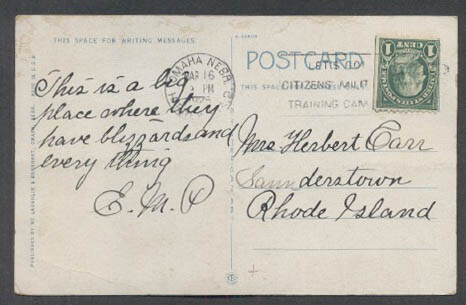 THIS SPACE FOR WRITING MESSAGES.
OMAHA NEBR.
MAR 16
PM
POSTCARD
THIS SPACE
LET'S GO
CITIZENS MILIT
TRAINING CAM
1 CENT 1
This is a big
place where they
have blizzards and
every thing
E. M. P
Mrs Herbert Carr
Saunderstown
Rhode Island